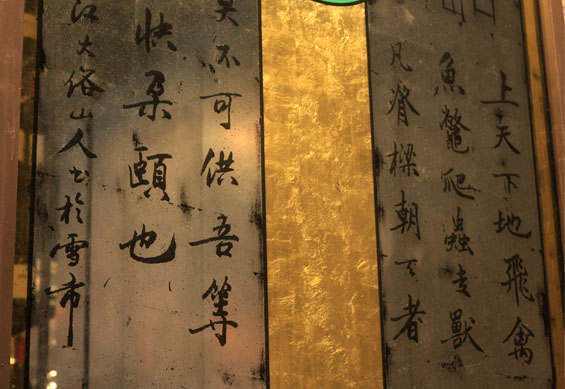 上天下地飛禽
魚鱉爬蟲走獸
凡脊樑朝天者
莫不可供吾等
快朵頤也
江大俗山人书於雪市